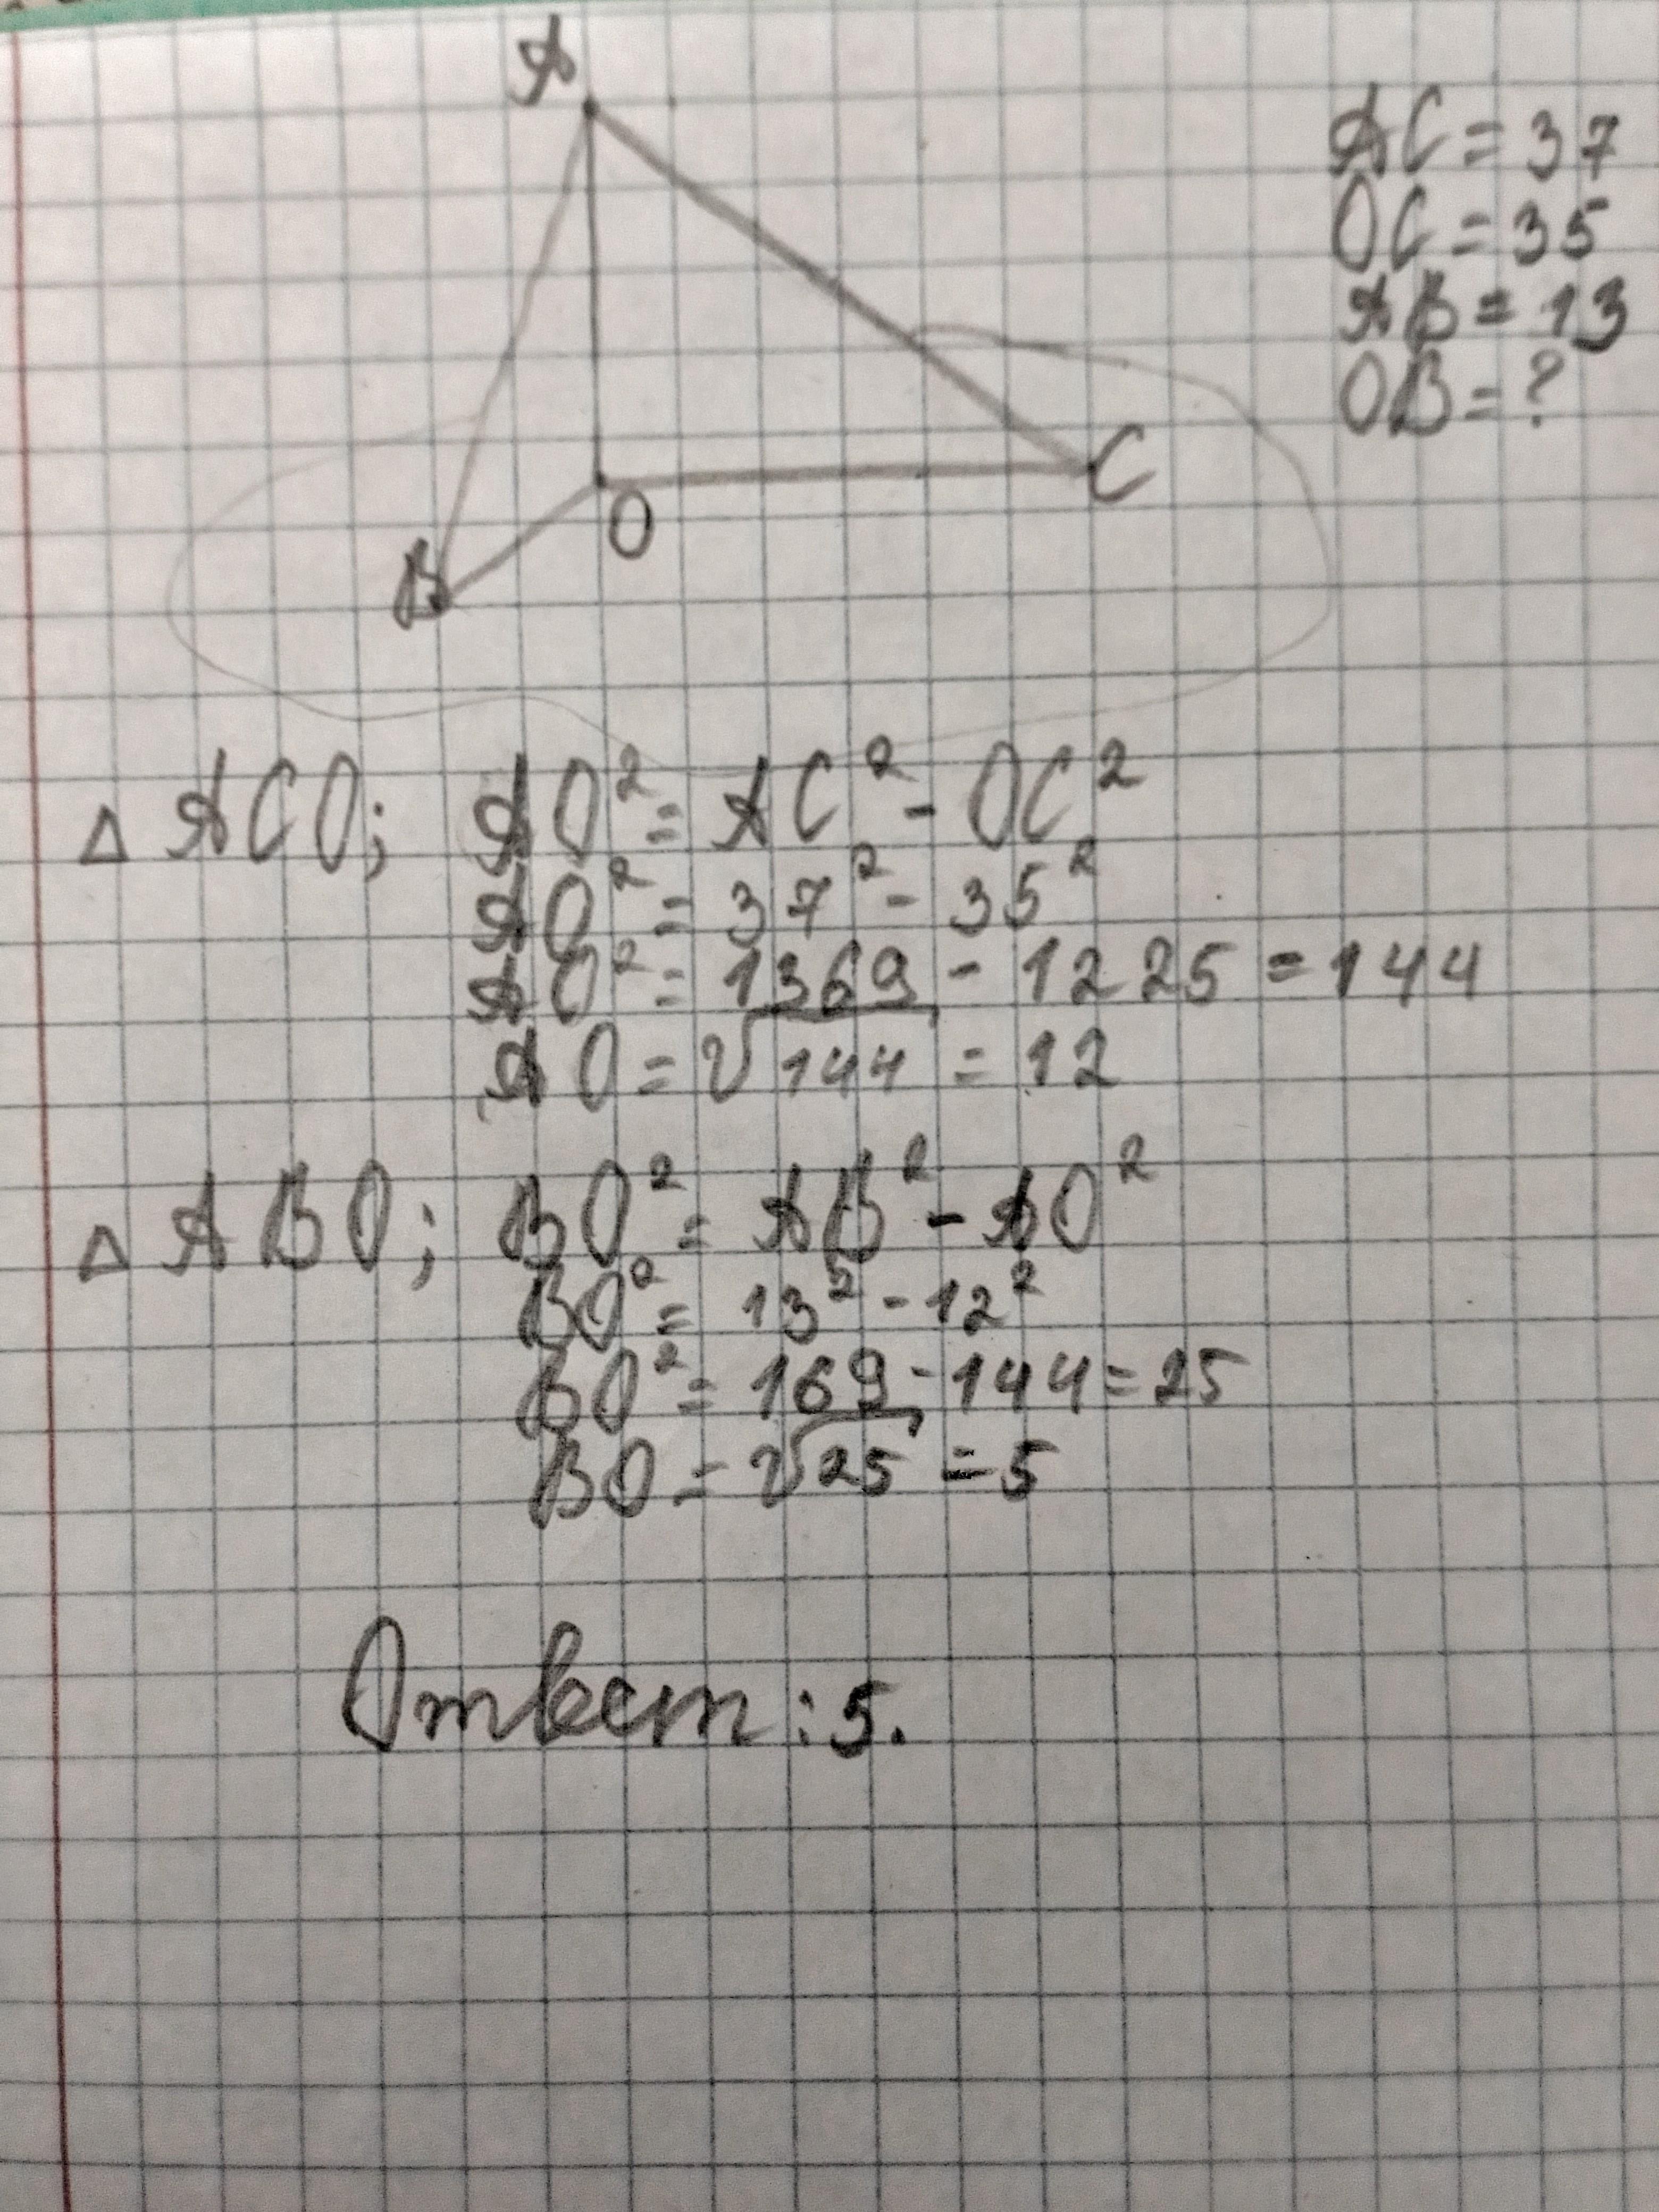 A
AC = 37
OC = 35
AB = 13
OB = ?
C
O
B
△ ACO; AO² = AC² - OC²
AO² = 37² - 35²
AO² = 1369 - 1225 = 144
AO = √144 = 12
△ ABO; BO² = AB² - AO²
BO² = 13² - 12²
BO² = 169 - 144 = 25
BO = √25 = 5
Ответ: 5.